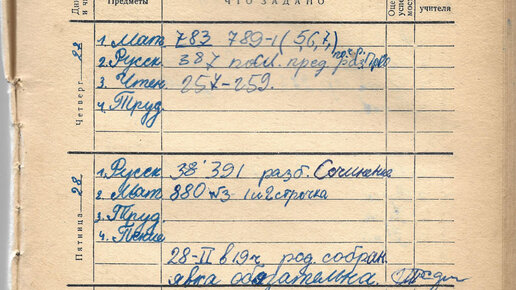 Дни и чи
Предметы
ЧТО ЗАДАНО
Оце
успе
мос
учителя
Четверг 22
1. Мат. 783 789-1 (5,6,7,)
2. Русск 387 посл. пред раз.
3. Чтен. 257-259.
4. Труд.
Пятница 28
1. Русск 38 391 разб. Сочинение
2. Мат 880 №3 1 и 2 строчка
3. Труд.
4. Пение
28-II в 19ч род. собран
явка обязательна.